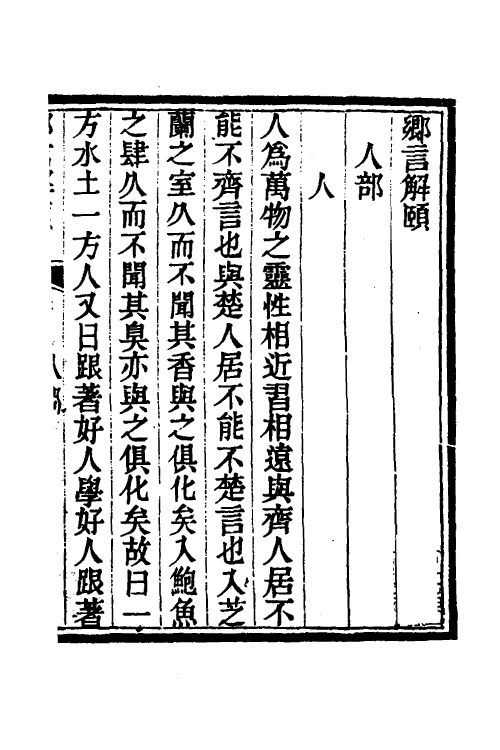 鄉言解頤
人部
人
人爲萬物之靈性相近習相遠與齊人居不
能不齊言也與楚人居不能不楚言也入芝
蘭之室久而不聞其香與之俱化矣入鮑魚
之肆久而不聞其臭亦與之俱化矣故曰一
方水土一方人又曰跟著好人學好人跟著